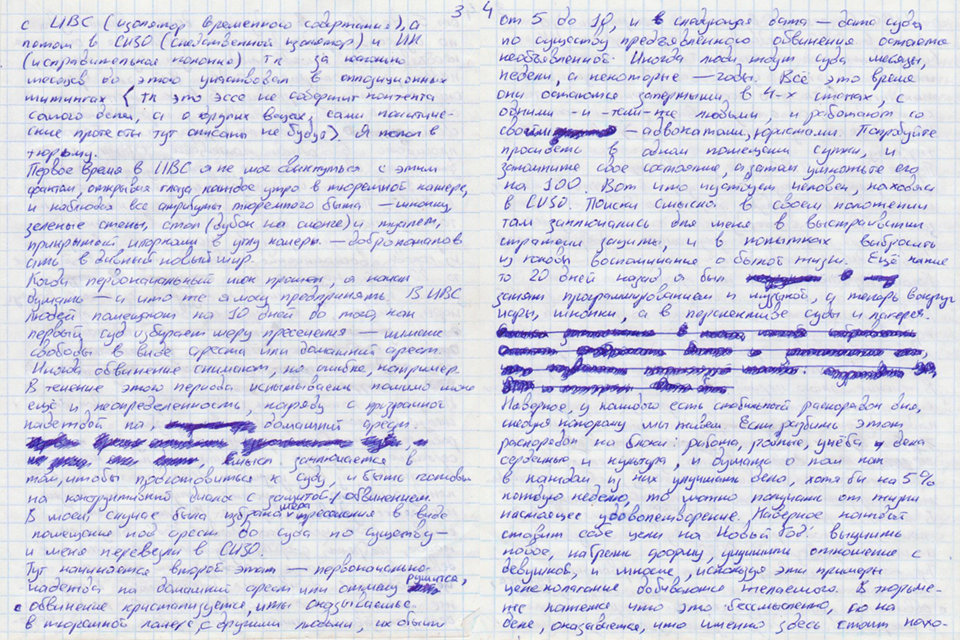 3
с ИВС (изолятор временного содержания), а
потом в СИЗО (следственный изолятор) и ИК
(исправительная колония) тк за несколько
месяцев до этого участвовал в оппозиционных
митингах (тк это эссе не содержит контента
самого дела, а о других вещах, сами политиче-
ские протесты тут описаны не будут). Я попал в
тюрьму.
Первое время в ИВС я не мог свыкнуться с этим
фактом, открывая глаза каждое утро в тюремной камере,
и наблюдая все атрибуты тюремного быта — шконку,
зеленые стены, стол (дубок на сленге) и туалет,
прикрытый шторками в углу камеры. — добро пожалов
ать в дивный новый мир.
Когда первоначальный шок прошел, я начал
думать — а что же я могу предпринять. В ИВС
людей помещают на 10 дней до того, как
первый суд избирает меру пресечения — лишение
свободы в виде ареста или домашний арест.
Иногда обвинение снимают, по ошибке, например.
В течение этого периода испытываешь помимо шока
ещё и неопределенность, наряду с призрачной
надеждой на, домашний арест.
Смысл заключается в
том, чтобы приготовиться к суду, и быть готовым
на конструктивный диалог с защитой/обвинением.
В моем случае была избрана мера пресечения в виде
помещение под арест до суда по существу —
и меня перевели в СИЗО.
Тут начинается второй этап — первоначальная
надежда на домашний арест или отмену рушится,
обвинение кристализуется, и ты оказываешься
в тюремной камере, с другими людьми, их обычно
4
от 5 до 10, и следующая дата — дата суда
по существу предъявленного обвинения остается
необъявленной. Иногда люди ждут суда месяцы,
недели, а некоторые — годы. Всё это время
они остаются запертыми в 4-х стенах, с
одними-и-теми-же людьми, и работают со
своими — адвокатами, юристами. Попробуйте
просидеть в одном помещении сутки, и
запомните свое состояние, а затем умножьте его
на 100. Вот что чувствует человек, находясь
в СИЗО. Поиски смысла в своем положении
там заключались для меня в выстраивании
стратегии защиты, и в попытках выбросить
из головы воспоминания о былой жизни. Ещё какие
то 20 дней назад я был
занят программированием и музыкой, а теперь вокруг
нары, шконки, а в перспективе суды и лагеря.
Наверное, у каждого есть стабильный распорядок дня,
следуя которому мы живем. Если разбить этот
распорядок на блоки: работа, учёба, дела
сердечные и культура, и думать о том как
в каждом из них улучшить дела, хотя бы на 5%
каждую неделю, то можно получать от жизни
настоящее удовольтворение. Наверное каждый
ставит себе цели на Новый Год: выучить
новое, набрать форму, улучшить отношение с
девушкой, и многие, используя эти примеры
целеполагания добиваются желаемого. В тюрьме-
же кажется что это бессмысленно, но на
деле, оказывается, что именно здесь стоит нахо-